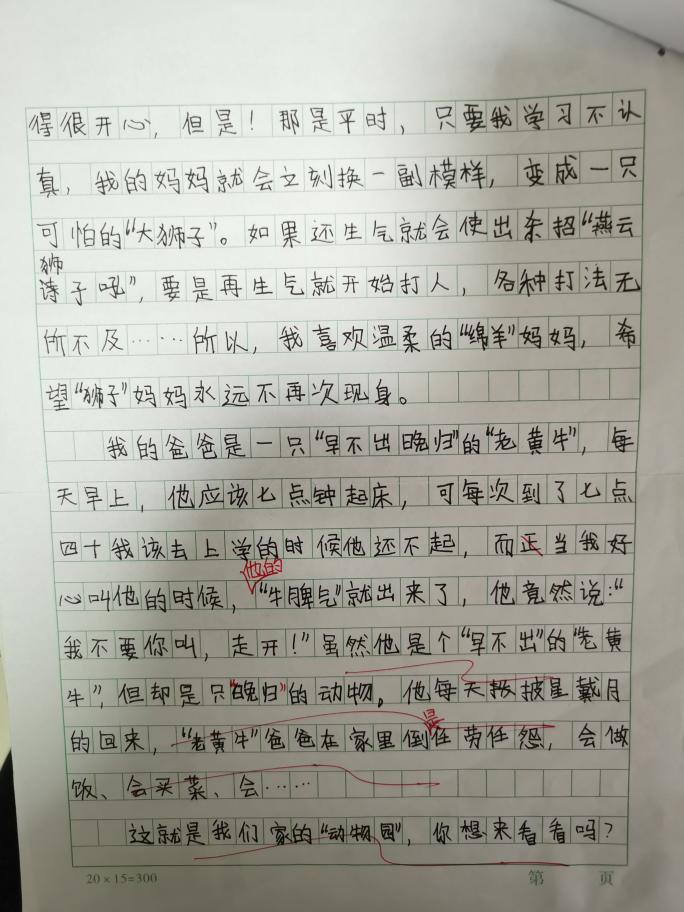 得很开心，但是！那是平时，只要我学习不认
真，我的妈妈就会立刻换一副模样，变成一只
可怕的“大狮子”。如果还生气就会使出杀招“燕云
狮
诗子吼”，要是再生气就开始打人，各种打法无
所不及……所以，我喜欢温柔的“绵羊”妈妈，希
望“狮子”妈妈永远不再次现身。
我的爸爸是一只“早不出晚归”的“老黄牛”，每
天早上，他应该七点钟起床，可每次到了七点
四十我该去上学的时候他还不起，而正当我好
他的
心叫他的时候，“牛脾气”就出来了，他竟然说：“
我不要你叫，走开！”虽然他是个“早不出”的“老黄
牛”，但却是只“晚归”的动物。他每天披披星戴月
的回来，“老黄牛”爸爸在家里倒任劳任怨，会做
是
饭、会买菜、会……
这就是我们家的“动物园”，你想来看看吗？
20×15=300
第 页